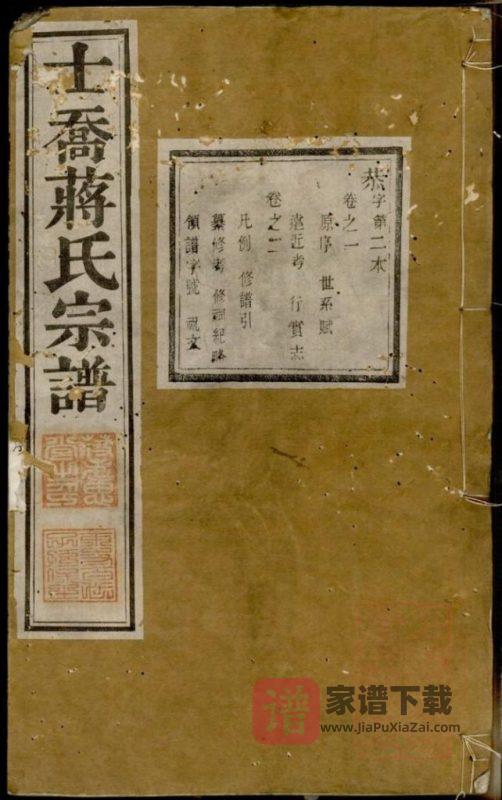 士喬蔣氏宗譜
恭字第二本
卷之一
原序 世系賦
遷近考 行實志
卷之二
凡例 修譜引
纂修考 修祠紀略
領譜字號 祝文
譜
家谱下载
www.JiaPuXiaZai.com